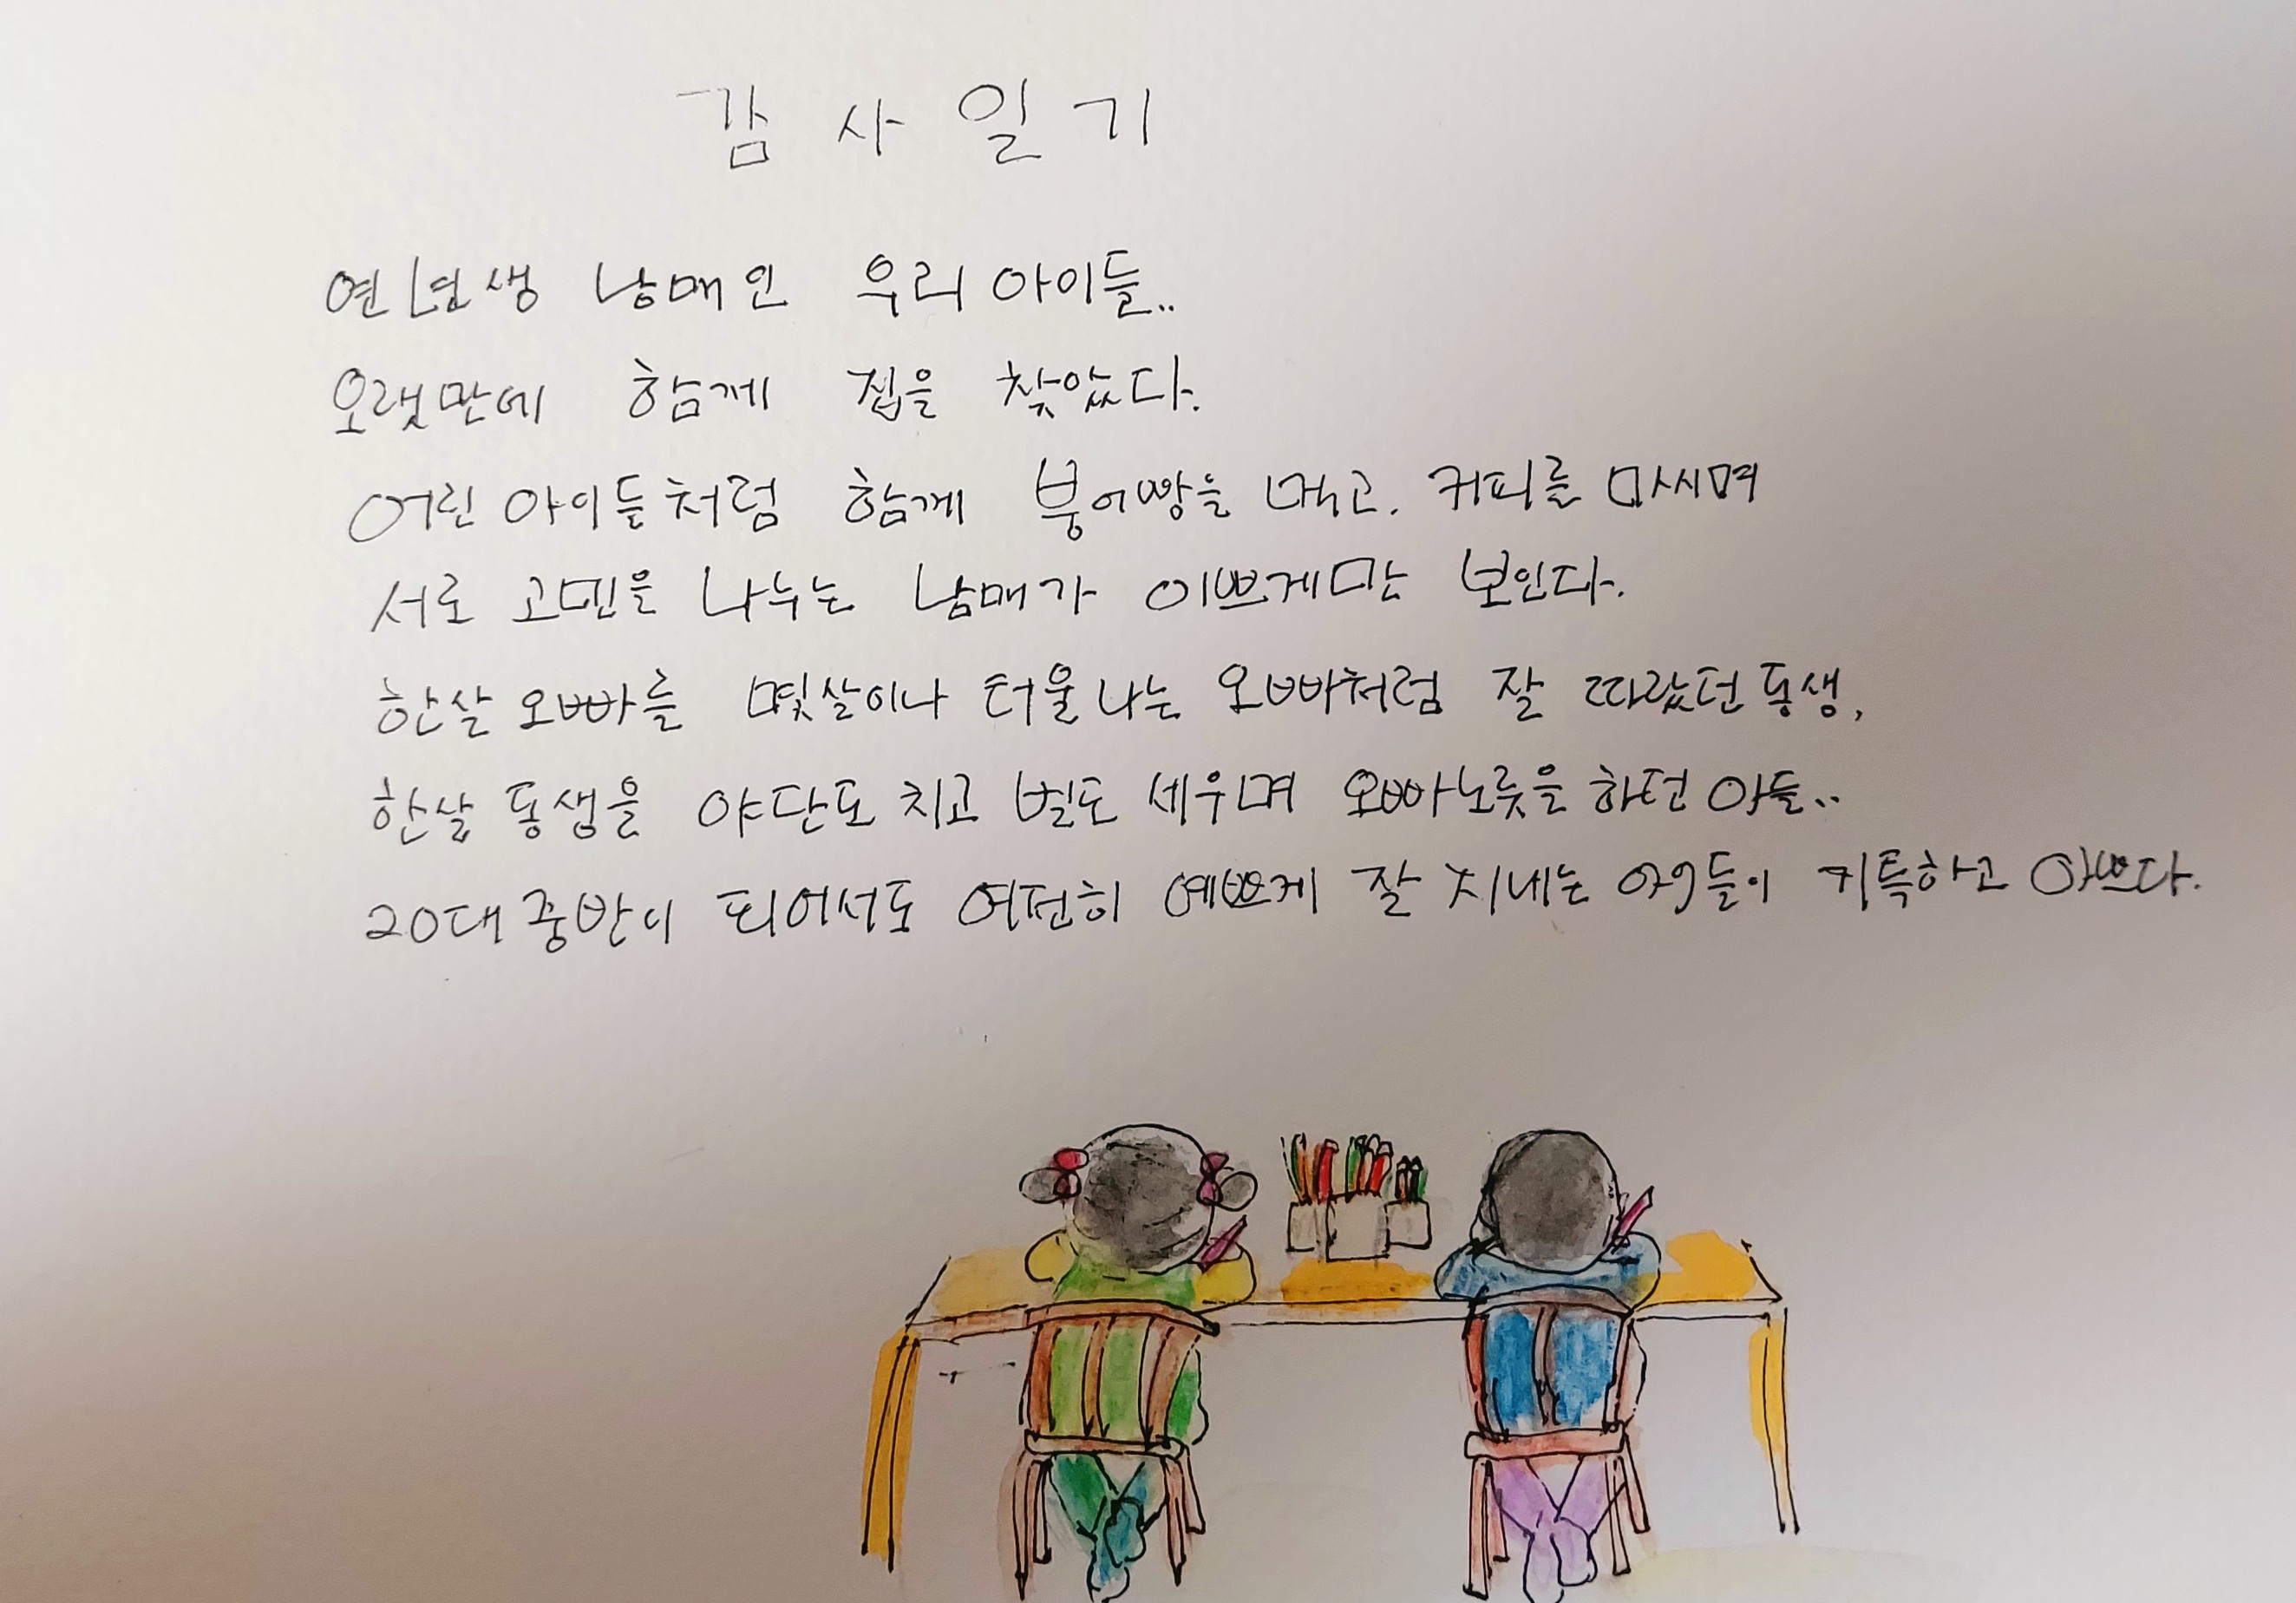 감사일기
연년생 남매인 우리 아이들..
오랫만에 함께 집을 찾았다.
어린 아이들처럼 함께 붕어빵을 먹고. 커피를 마시며
서로 고민을 나누는 남매가 이쁘게만 보인다.
한살 오빠를 몇살이나 터울나는 오빠처럼 잘 따랐던 동생,
한살 동생을 야단도 치고 벌도 세우며 오빠노릇을 하던 아들..
20대 중반이 되어서도 여전히 예쁘게 잘 지내는 아이들이 기특하고 이쁘다.